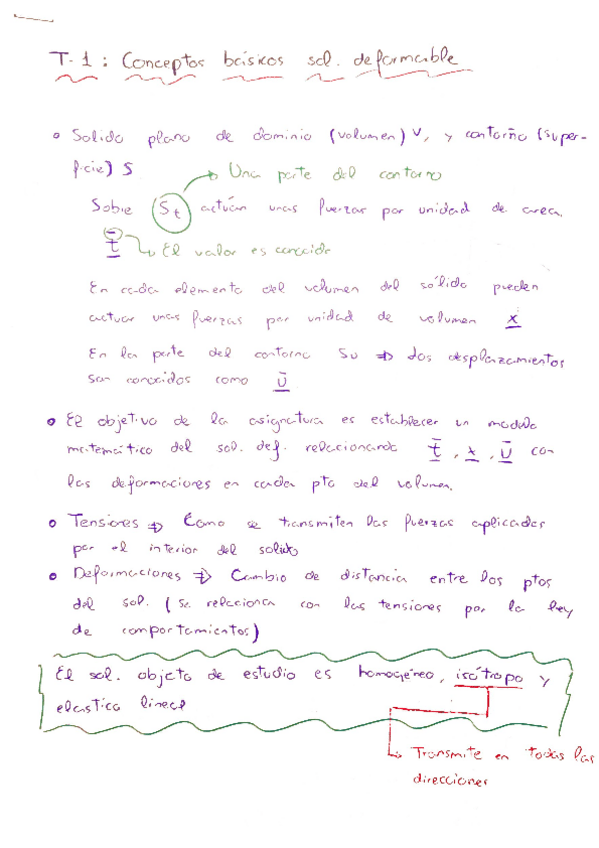 T-1: Conceptos básicos sol. deformable
Solido plano de dominio (volumen) V, y contorno (super-
ficie) S
Una parte del contorno
Sobre St actúan unas fuerzas por unidad de area.
t̄ El valor es conocido
En cada elemento del volumen del sólido pueden
actuar unas fuerzas por unidad de volumen x
En la parte del contorno Su ⇒ dos desplazamientos
son conocidos como ū
El objetivo de la asignatura es establecer un modelo
matemático del sol. def. relacionando t̄, x, ū con
las deformaciones en cada pto del volumen.
Tensiones ⇒ Como se transmiten las fuerzas aplicadas
por el interior del solido
Deformaciones ⇒ Cambio de distancia entre los ptos
del sol. (se relaciona con las tensiones por la ley
de comportamientos)
El sol. objeto de estudio es homogéneo, isótropo y
elastico lineal
Transmite en todas las
direcciones